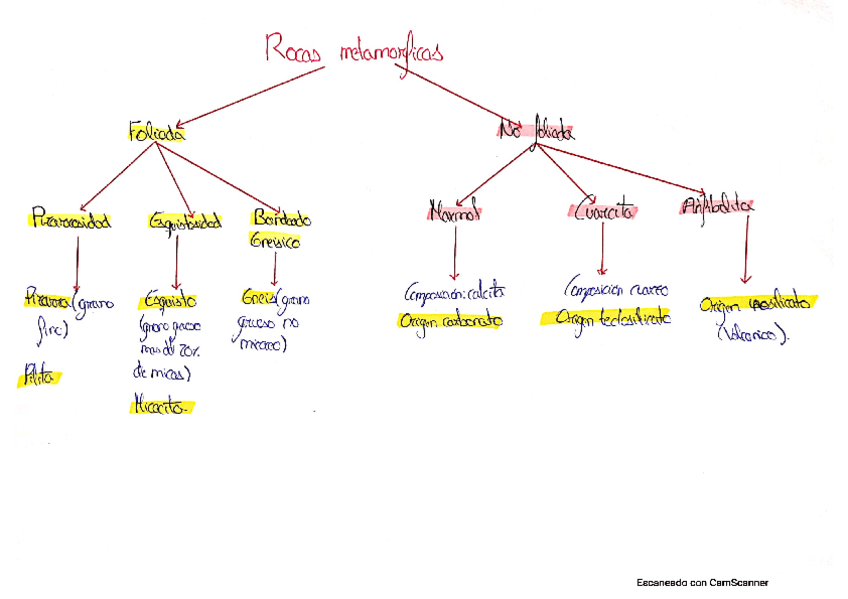 Rocas metamorficas
Foliada
No foliada
Pizarrosidad
Esquistosidad
Bandeado
Gneisico
Marmol
Cuarcita
Anfibolita
Pizarra (grano
fino)
Filita
Esquisto
(grano grueso
mas del 20%
de micas)
Micacita
Gneis (grano
grueso no
micaceo)
Composición: calcita
Origen carbonato
Composicion cuarzo
Origen teclosilicato
Origen
(Volcanico).
Escaneado con CamScanner